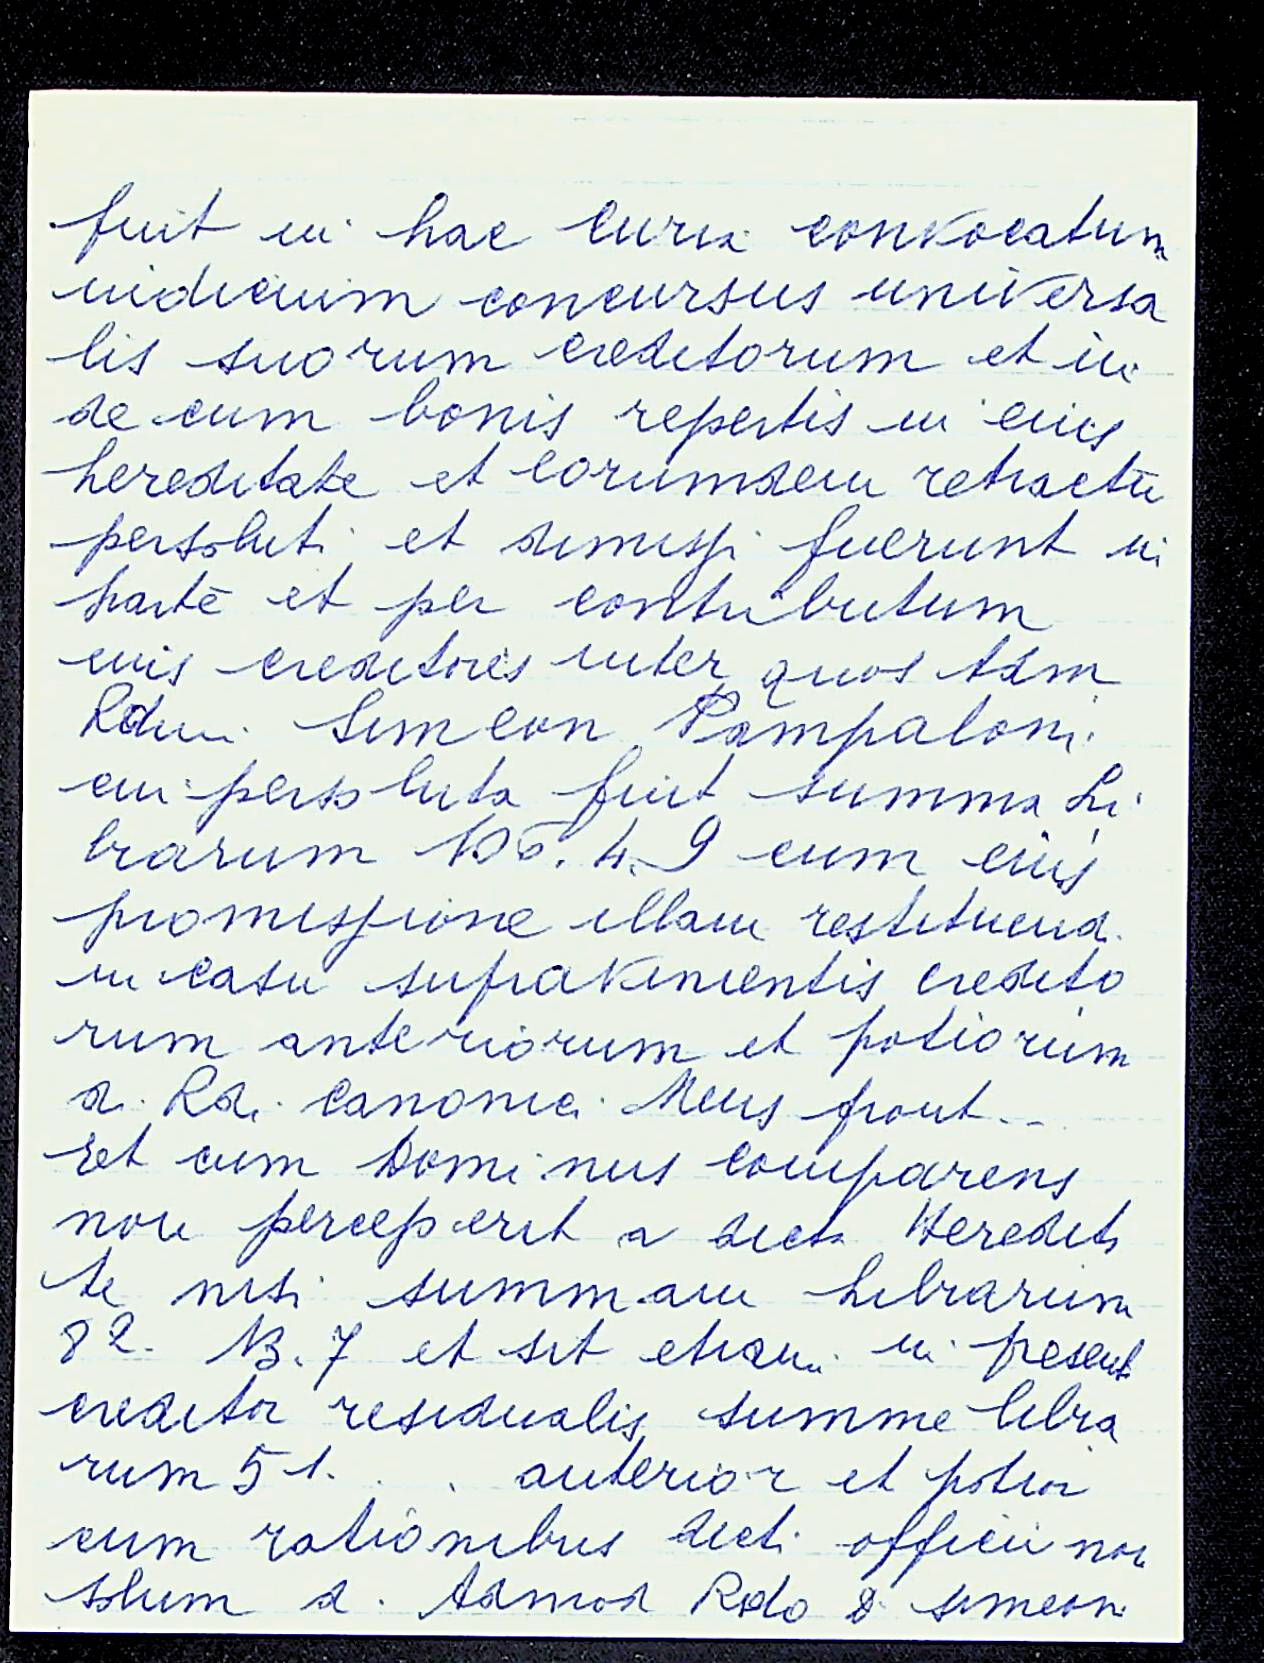 fuit in hac Curia convocatum
iudicium concursus universa
lis suorum creditorum et in
de cum bonis repertis in eius
hereditate et eorumdem retractū
persoluti et dimissi fuerunt in
partē et per contributum
eius creditores inter quos Adm
Rdum. Simeon Pampaloni
cui persoluta fuit summa Li
brarum 4.9 cum eius
promissione illam restituend.
in casu supravenientis credito
rum anteriorum et potiorum
d. Rdi. Canonici Meus prout...
Et cum Dominus Comparens
non perceperit a dicta Heredita
te nisi summam Librarum
82. 13. 7 et sit etiam in present
creditor residualis summe libra
rum 51. . . anterior et potior
cum rationibus dicti officii non
solum d. Admod Rdo D Simeon